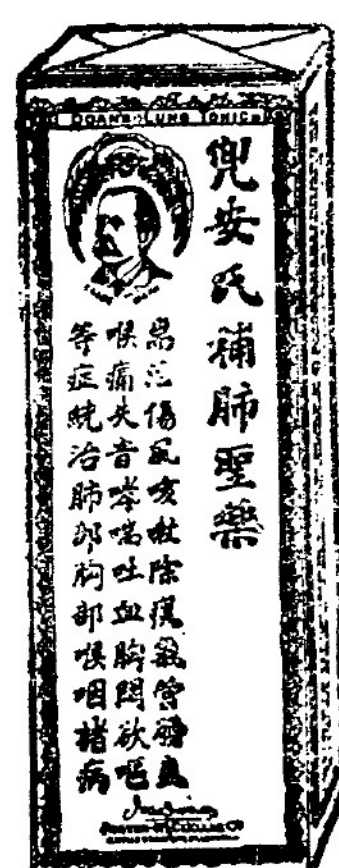 DOAN'S LUNG TONIC
兜安氏補肺聖藥
傷風咳除痰氣管
喉痛失音哮喘吐血胸悶欲嘔
等症統治肺部胸部喉咽諸病
FOSTER-McCLELLAN CO